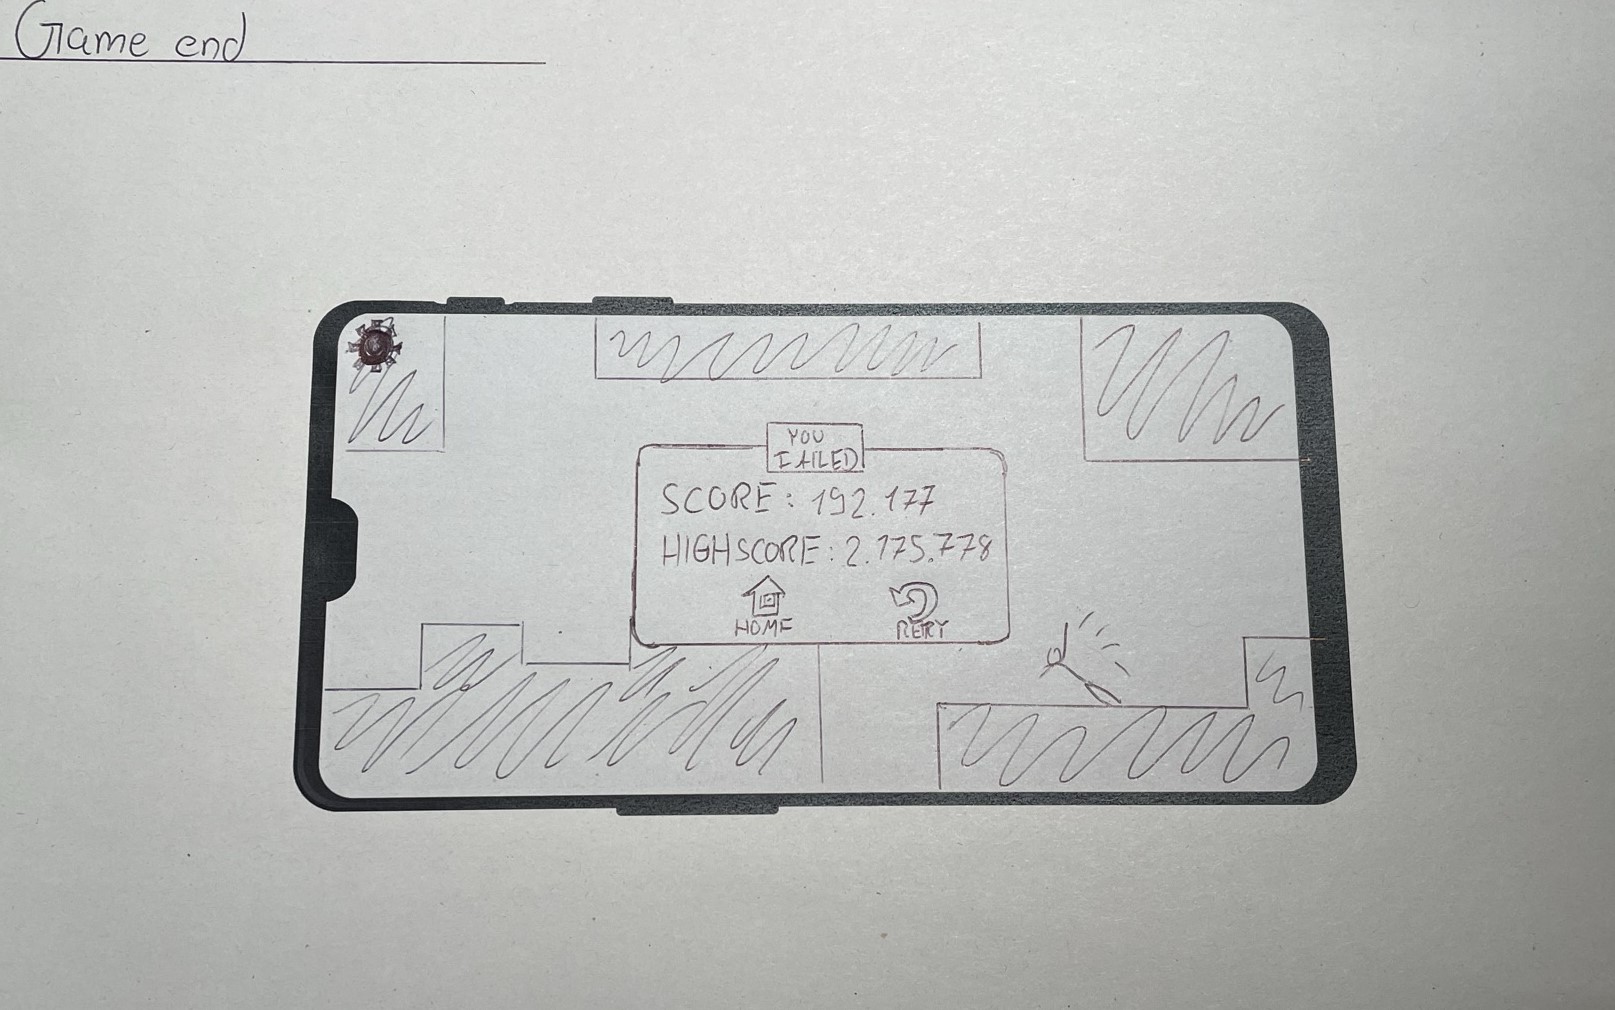 Game end
YOU
FAILED
SCORE: 192.177
HIGHSCORE: 2.175.778
HOME
RETRY